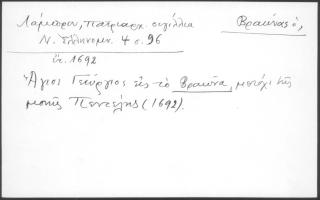 Λάμπρου, Πατριαρχ. σιγίλλια Βραώνας ὁ,
Ν. Ἑλληνομν. 4 σ. 96
ἔτ. 1692
Ἅγιος Γεώργιος εἰς τὸ Βραῶνα, μετόχι τῆς
μονῆς Πεντέλης (1692).